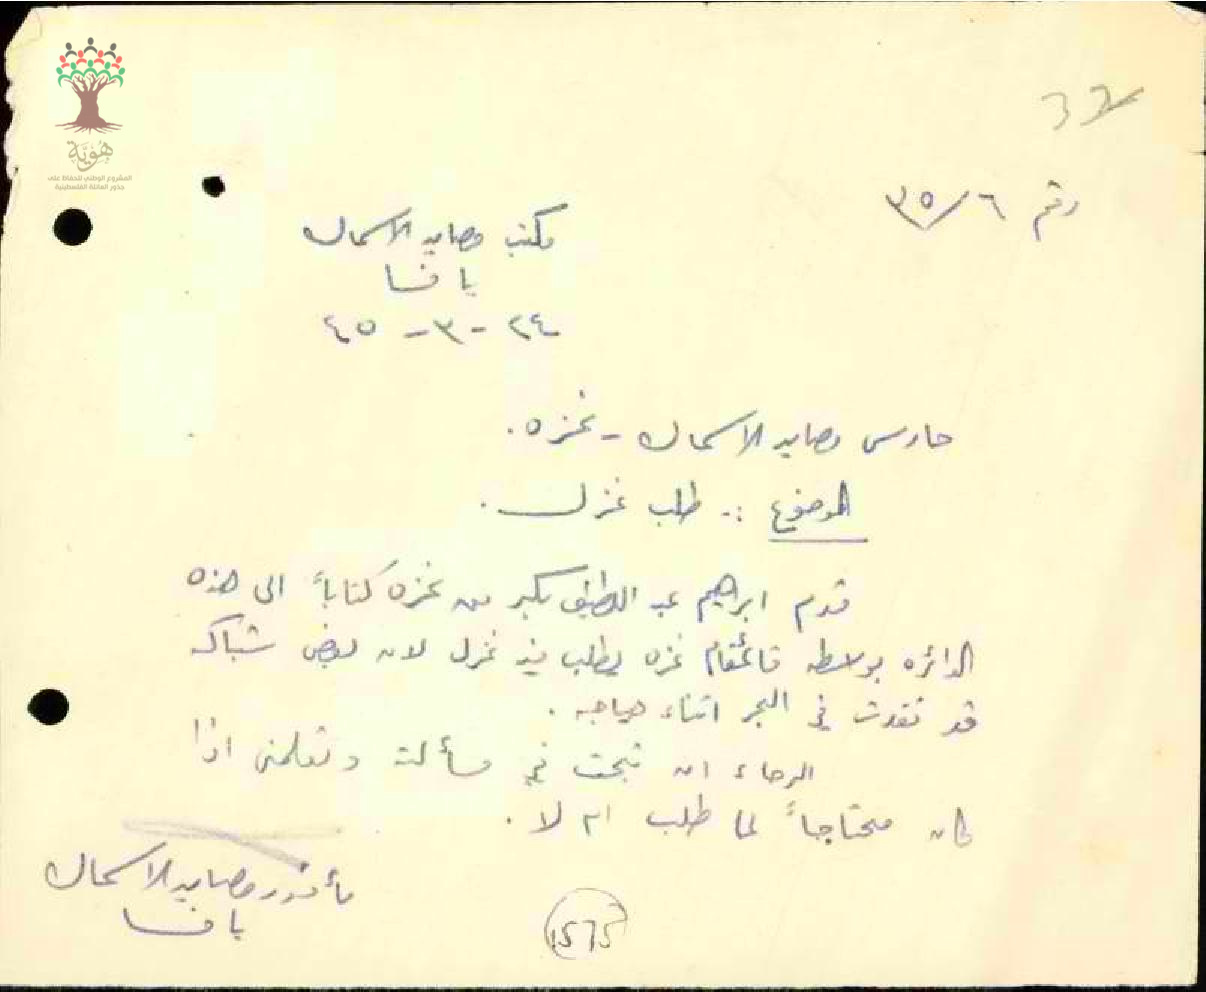 هُوِيَّة
المشروع الوطني للحفاظ على
جذور العائلة الفلسطينية
رقم ٣٥/٦
مكتب مصايد الاسماك
يافا
٢٤-٣-٤٥
حارس مصايد الاسماك - غزه.
الموضوع :- طلب غزل.
قدم ابراهيم عبد اللطيف بكر من غزه كتاباً الى هذه
الدائره بواسطه قائمقام غزه يطلب فيه غزل لان بعض شباكه
قد فقدت في البحر اثناء هياجه.
الرجاء ان تبحث في مسألته وتعلمني اذا
كان محتاجاً لما طلب ام لا.
مأمور مصايد الاسماك
يافا